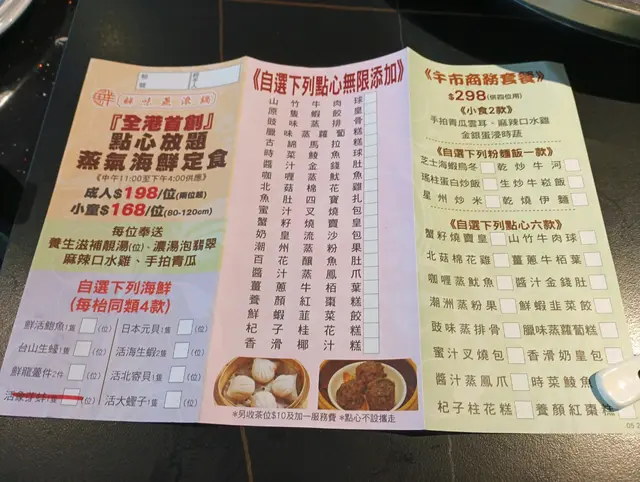 鮮味蒸滾鍋
『全港首創』
點心放題
蒸氣海鮮定食
《中午11:00至下午4:00供應》
成人$198/位(兩位起)
小童$168/位(80-120cm)
每位奉送
養生滋補靚湯(位)、濃湯泡翡翠
麻辣口水雞、手拍青瓜
自選下列海鮮
(每枱同類4款)
鮮活鮑魚1隻 (位) 日本元貝1隻 (位)
台山生蠔1隻 (位) 活海生蝦2隻 (位)
鮮龍躉件2件 (位) 活北寄貝1隻 (位)
活大蟶子1隻 (位)
《自選下列點心無限添加》
山竹牛肉球
豉味蒸排骨
臘味蒸蘿蔔糕
醬汁金錢肚
咖喱蒸魷魚
北菇棉花雞
蜜汁叉燒包
奶皇流沙包
潮州蒸粉果
薑蔥牛栢葉
養顏紅棗糕
鮮蝦韭菜餃
杞子桂花糕
香滑椰汁糕
*另收茶位$10及加一服務費 *點心不設攜走
《午市商務套餐》
$298(供四位用)
《小食2款》
手拍青瓜雲耳、麻辣口水雞
金銀蛋浸時蔬
《自選下列粉麵飯一款》
芝士海蝦烏冬 乾炒牛河
瑤柱蛋白炒飯 生炒牛崧飯
星州炒米 乾燒伊麵
《自選下列點心六款》
蟹籽燒賣皇 山竹牛肉球
北菇棉花雞 薑蔥牛栢葉
咖喱蒸魷魚 醬汁金錢肚
潮洲蒸粉果 鮮蝦韭菜餃
豉味蒸排骨 臘味蒸蘿蔔糕
蜜汁叉燒包 香滑奶皇包
醬汁蒸鳳爪 時菜鯪魚
杞子桂花糕 養顏紅棗糕